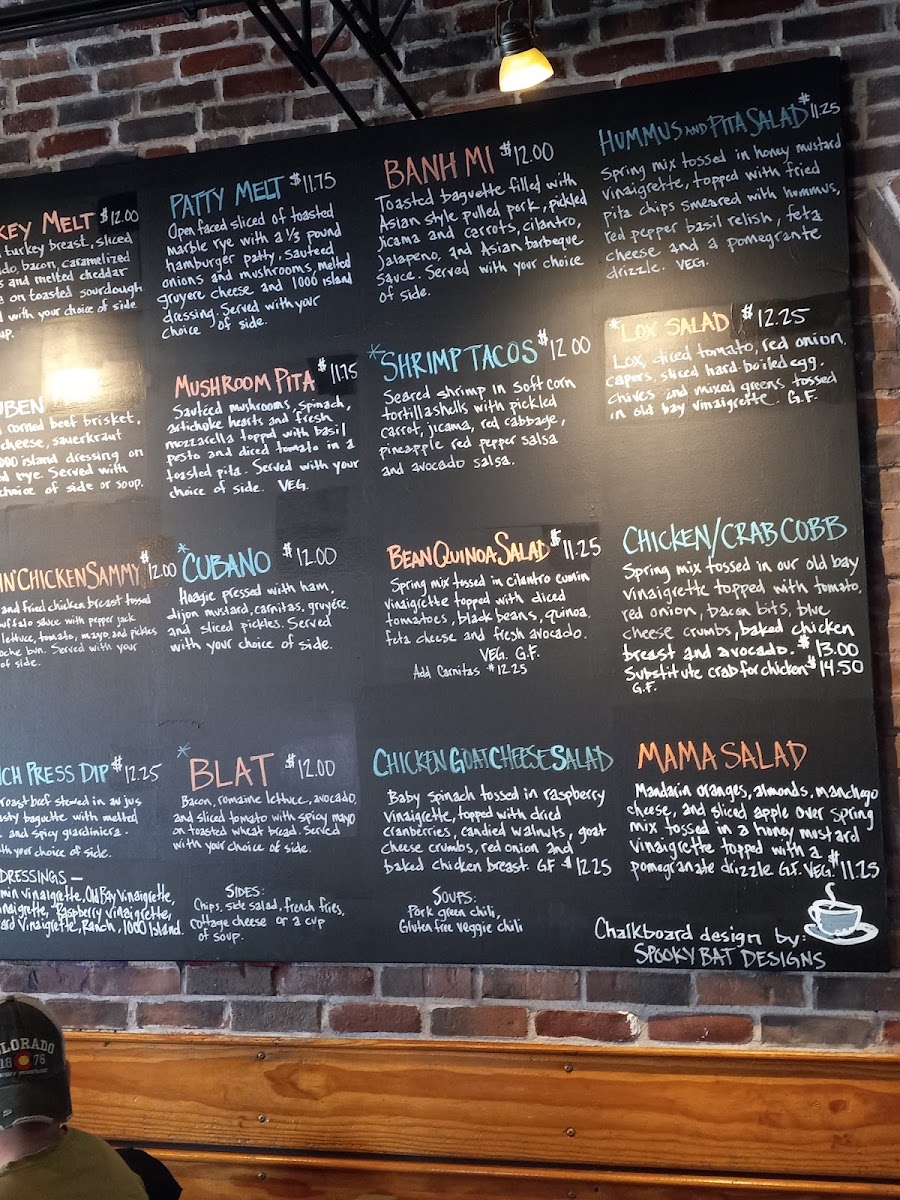 KEY MELT $12.00
turkey breast, sliced
do, bacon, caramelized
s and melted cheddar
e on toasted sourdough
with your choice of side
up.
UBEN
corned beef brisket,
cheese, sauerkraut
000 island dressing on
d rye. Served with
choice of side or soup.
IN' CHICKEN SAMMY $12.00
and fried chicken breast tossed
uffalo sauce with pepper jack
lettuce, tomato, mayo, and pickles
oche bun. Served with your
of side.
CH PRESS DIP $12.25
roast beef stewed in au jus
asty baguette with melted
and spicy giardiniera.
ith your choice of side.
DRESSINGS —
min vinaigrette, Old Bay Vinaigrette,
inaigrette, Raspberry Vinaigrette,
ard Vinaigrette, Ranch, 1000 Island.
PATTY MELT $11.75
Open faced sliced of toasted
marble rye with a 1/3 pound
hamburger patty, sauteed
onions and mushrooms, melted
gruyere cheese and 1000 island
dressing. Served with your
choice of side.
MUSHROOM PITA $11.75
Sautéed mushrooms, spinach,
artichoke hearts and fresh
mozzarella topped with basil
pesto and diced tomato in a
toasted pita. Served with your
choice of side. VEG.
*CUBANO $12.00
Hoagie pressed with ham,
dijon mustard, carnitas, gruyére,
and sliced pickles. Served
with your choice of side.
*BLAT $12.00
Bacon, romaine lettuce, avocado,
and sliced tomato with spicy mayo
on toasted wheat bread. Served
with your choice of side.
SIDES:
Chips, side salad, french fries,
cottage cheese or a cup
of soup.
BANH MI $12.00
Toasted baguette filled with
Asian style pulled pork, pickled
jicama and carrots, cilantro,
jalapeno, and Asian barbeque
sauce. Served with your choice
of side.
*SHRIMP TACOS $12.00
Seared shrimp in soft corn
tortilla shells with pickled
carrot, jicama, red cabbage,
pineapple red pepper salsa
and avocado salsa.
BEAN QUINOA SALAD $11.25
Spring mix tossed in cilantro cumin
vinaigrette topped with diced
tomatoes, black beans, quinoa,
feta cheese and fresh avocado.
VEG. G.F.
Add Carnitas $12.25
CHICKEN GOAT CHEESE SALAD
Baby spinach tossed in raspberry
vinaigrette, topped with dried
cranberries, candied walnuts, goat
cheese crumbs, red onion and
baked chicken breast. GF $12.25
SOUPS:
Pork green chili,
Gluten free veggie chili
HUMMUS AND PITA SALAD $11.25
Spring mix tossed in honey mustard
vinaigrette, topped with fried
pita chips smeared with hummus,
red pepper basil relish, feta
cheese and a pomegrante
drizzle. VEG.
*LOX SALAD $12.25
Lox, diced tomato, red onion,
capers, sliced hard-boiled egg,
chives and mixed greens tossed
in old bay vinaigrette. G.F.
CHICKEN/CRAB COBB
Spring mix tossed in our old bay
vinaigrette topped with tomato,
red onion, bacon bits, blue
cheese crumbs, baked chicken
breast and avocado. $13.00
Substitute crab for chicken $14.50
G.F.
MAMA SALAD
Mandarin oranges, almonds, manchego
cheese, and sliced apple over spring
mix tossed in a honey mustard
vinaigrette topped with a
pomegranate drizzle G.F. VEG. $11.25
Chalkboard design by:
SPOOKY BAT DESIGNS
OLORADO
18 76